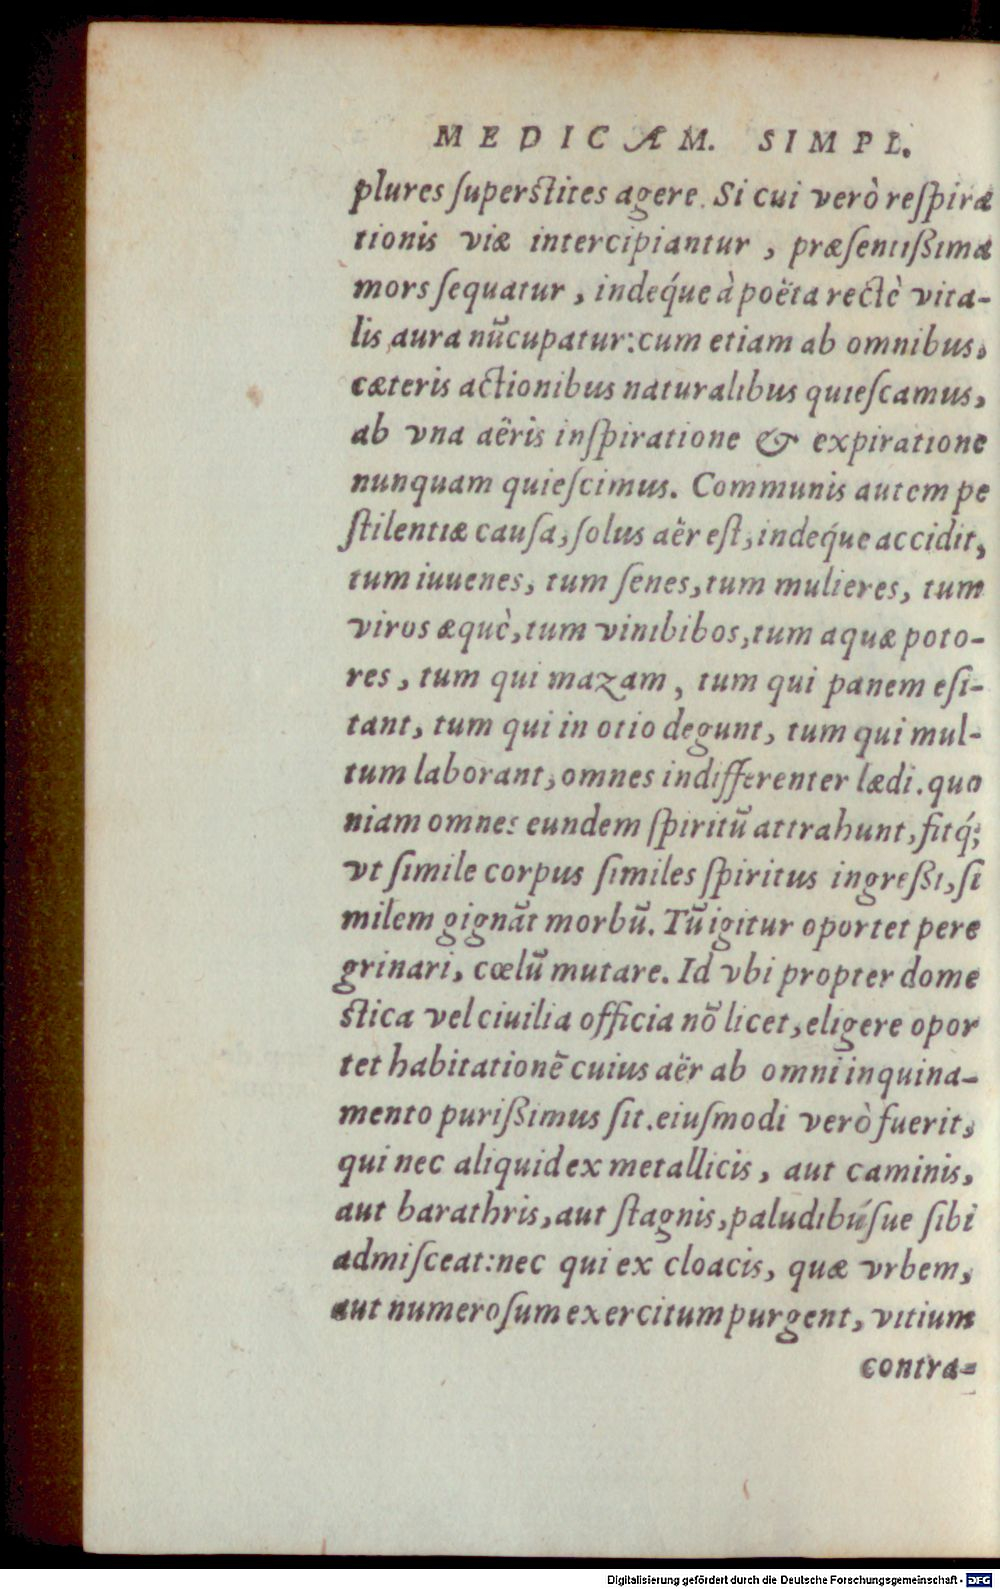 MEDICAM. SIMPL.
plures ſuperſtites agere. Si cui verò reſpira
tionis viæ intercipiantur, præſentißima
mors ſequatur, indeq́ue à poëta rectè vita-
lis aura nũcupatur: cum etiam ab omnibus,
cæteris actionibus naturalibus quieſcamus,
ab vna aëris inſpiratione & expiratione
nunquam quieſcimus. Communis autem pe
ſtilentiæ cauſa, ſolus aër eſt, indeq́ue accidit,
tum iuuenes, tum ſenes, tum mulieres, tum
viros æquè, tum vinibibos, tum aquæ poto-
res, tum qui mazam, tum qui panem eſi-
tant, tum qui in otio degunt, tum qui mul-
tum laborant, omnes indifferenter lædi. quo
niam omnes eundem ſpiritũ attrahunt, fitq́;
vt ſimile corpus ſimiles ſpiritus ingreßi, ſi
milem gignãt morbũ. Tũ igitur oportet pere
grinari, cœlũ mutare. Id vbi propter dome
ſtica vel ciuilia officia nõ licet, eligere opor
tet habitationẽ cuius aër ab omni inquina-
mento purißimus ſit. eiuſmodi verò fuerit,
qui nec aliquid ex metallicis, aut caminis,
aut barathris, aut ſtagnis, paludibúſue ſibi
admiſceat: nec qui ex cloacis, quæ vrbem,
aut numeroſum exercitum purgent, vitium
contra-
Digitalisierung gefördert durch die Deutsche Forschungsgemeinschaft - DFG